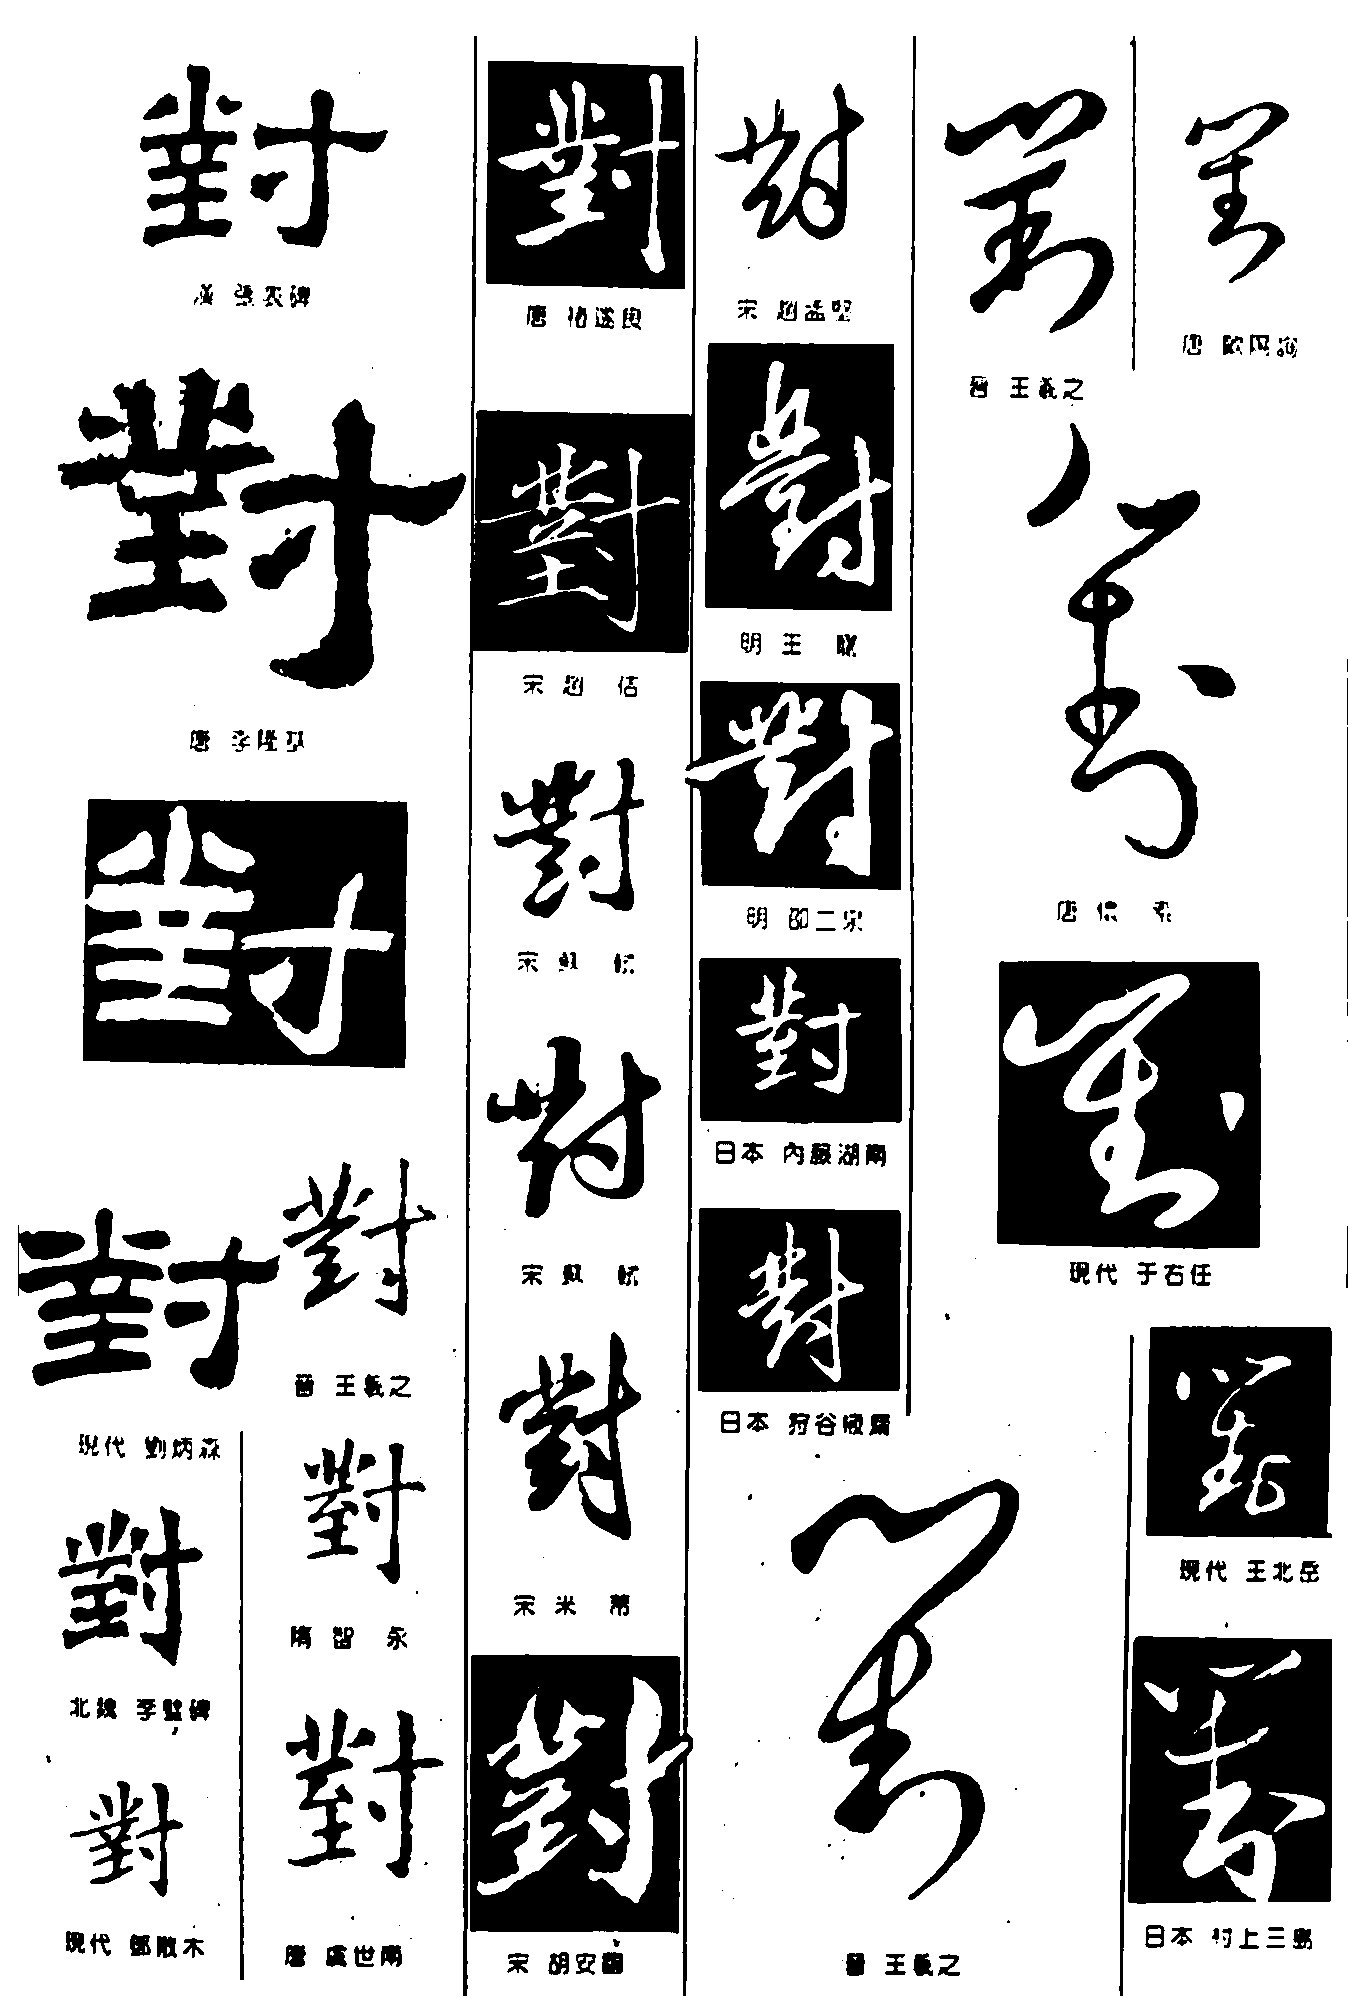 對
漢 張表碑
對
唐 李隆基
對
對
現代 劉炳森
對
北魏 李璧碑
對
現代 鄧散木
對
晉 王羲之
對
隋 智 永
對
唐 虞世南
對
唐 褚遂良
對
宋 趙 佶
對
宋 蘇 軾
對
宋 蘇 軾
對
宋 米 芾
對
宋 胡安國
對
宋 趙孟堅
對
明 王
對
明 邵二泉
對
日本 內藤湖南
對
日本 狩谷棭齋
對
晉 王羲之
對
唐 歐陽詢
對
唐 懷 素
對
現代 于右任
對
晉 王羲之
對
現代 王北岳
對
日本 村上三島